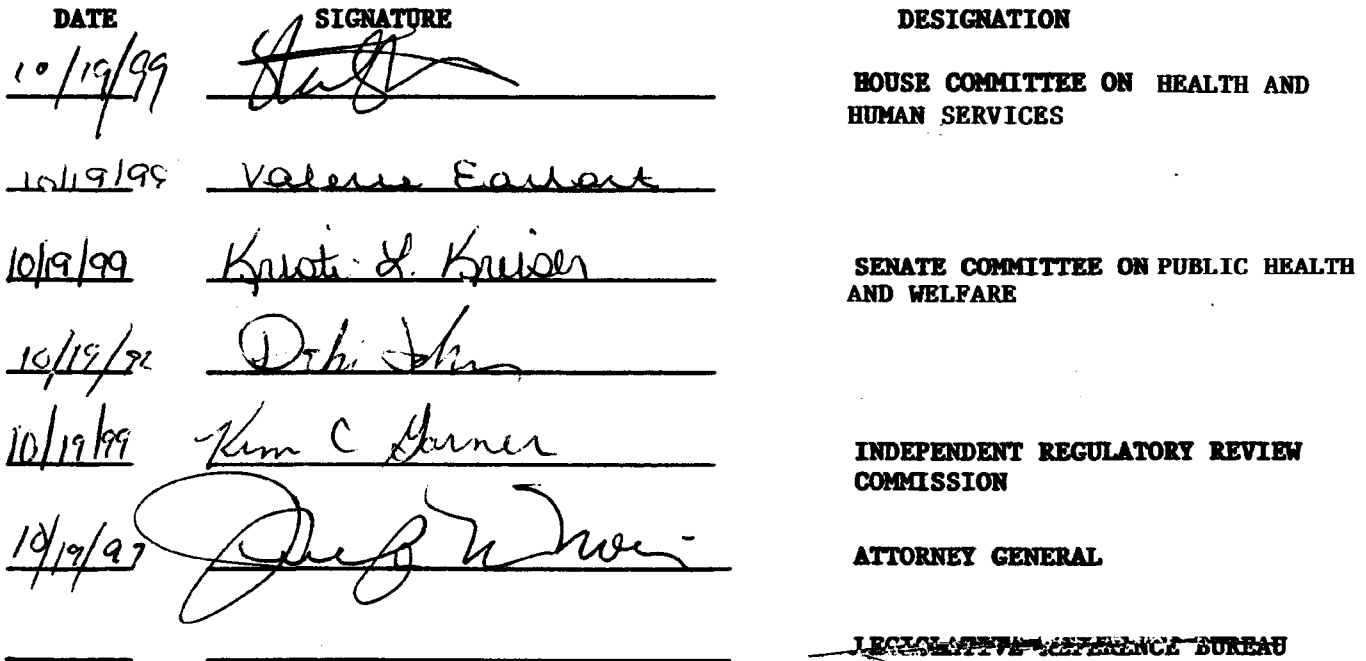 DATE SIGNATURE DESIGNATION
10/19/99 HOUSE COMMITTEE ON HEALTH AND
HUMAN SERVICES
10/19/99 Valerie Earhart
10/19/99 Kristi L. Kreiser SENATE COMMITTEE ON PUBLIC HEALTH
AND WELFARE
10/19/99 Debi
10/19/99 Kim C Garner INDEPENDENT REGULATORY REVIEW
COMMISSION
10/19/97 ATTORNEY GENERAL
LEGISLATIVE REFERENCE BUREAU